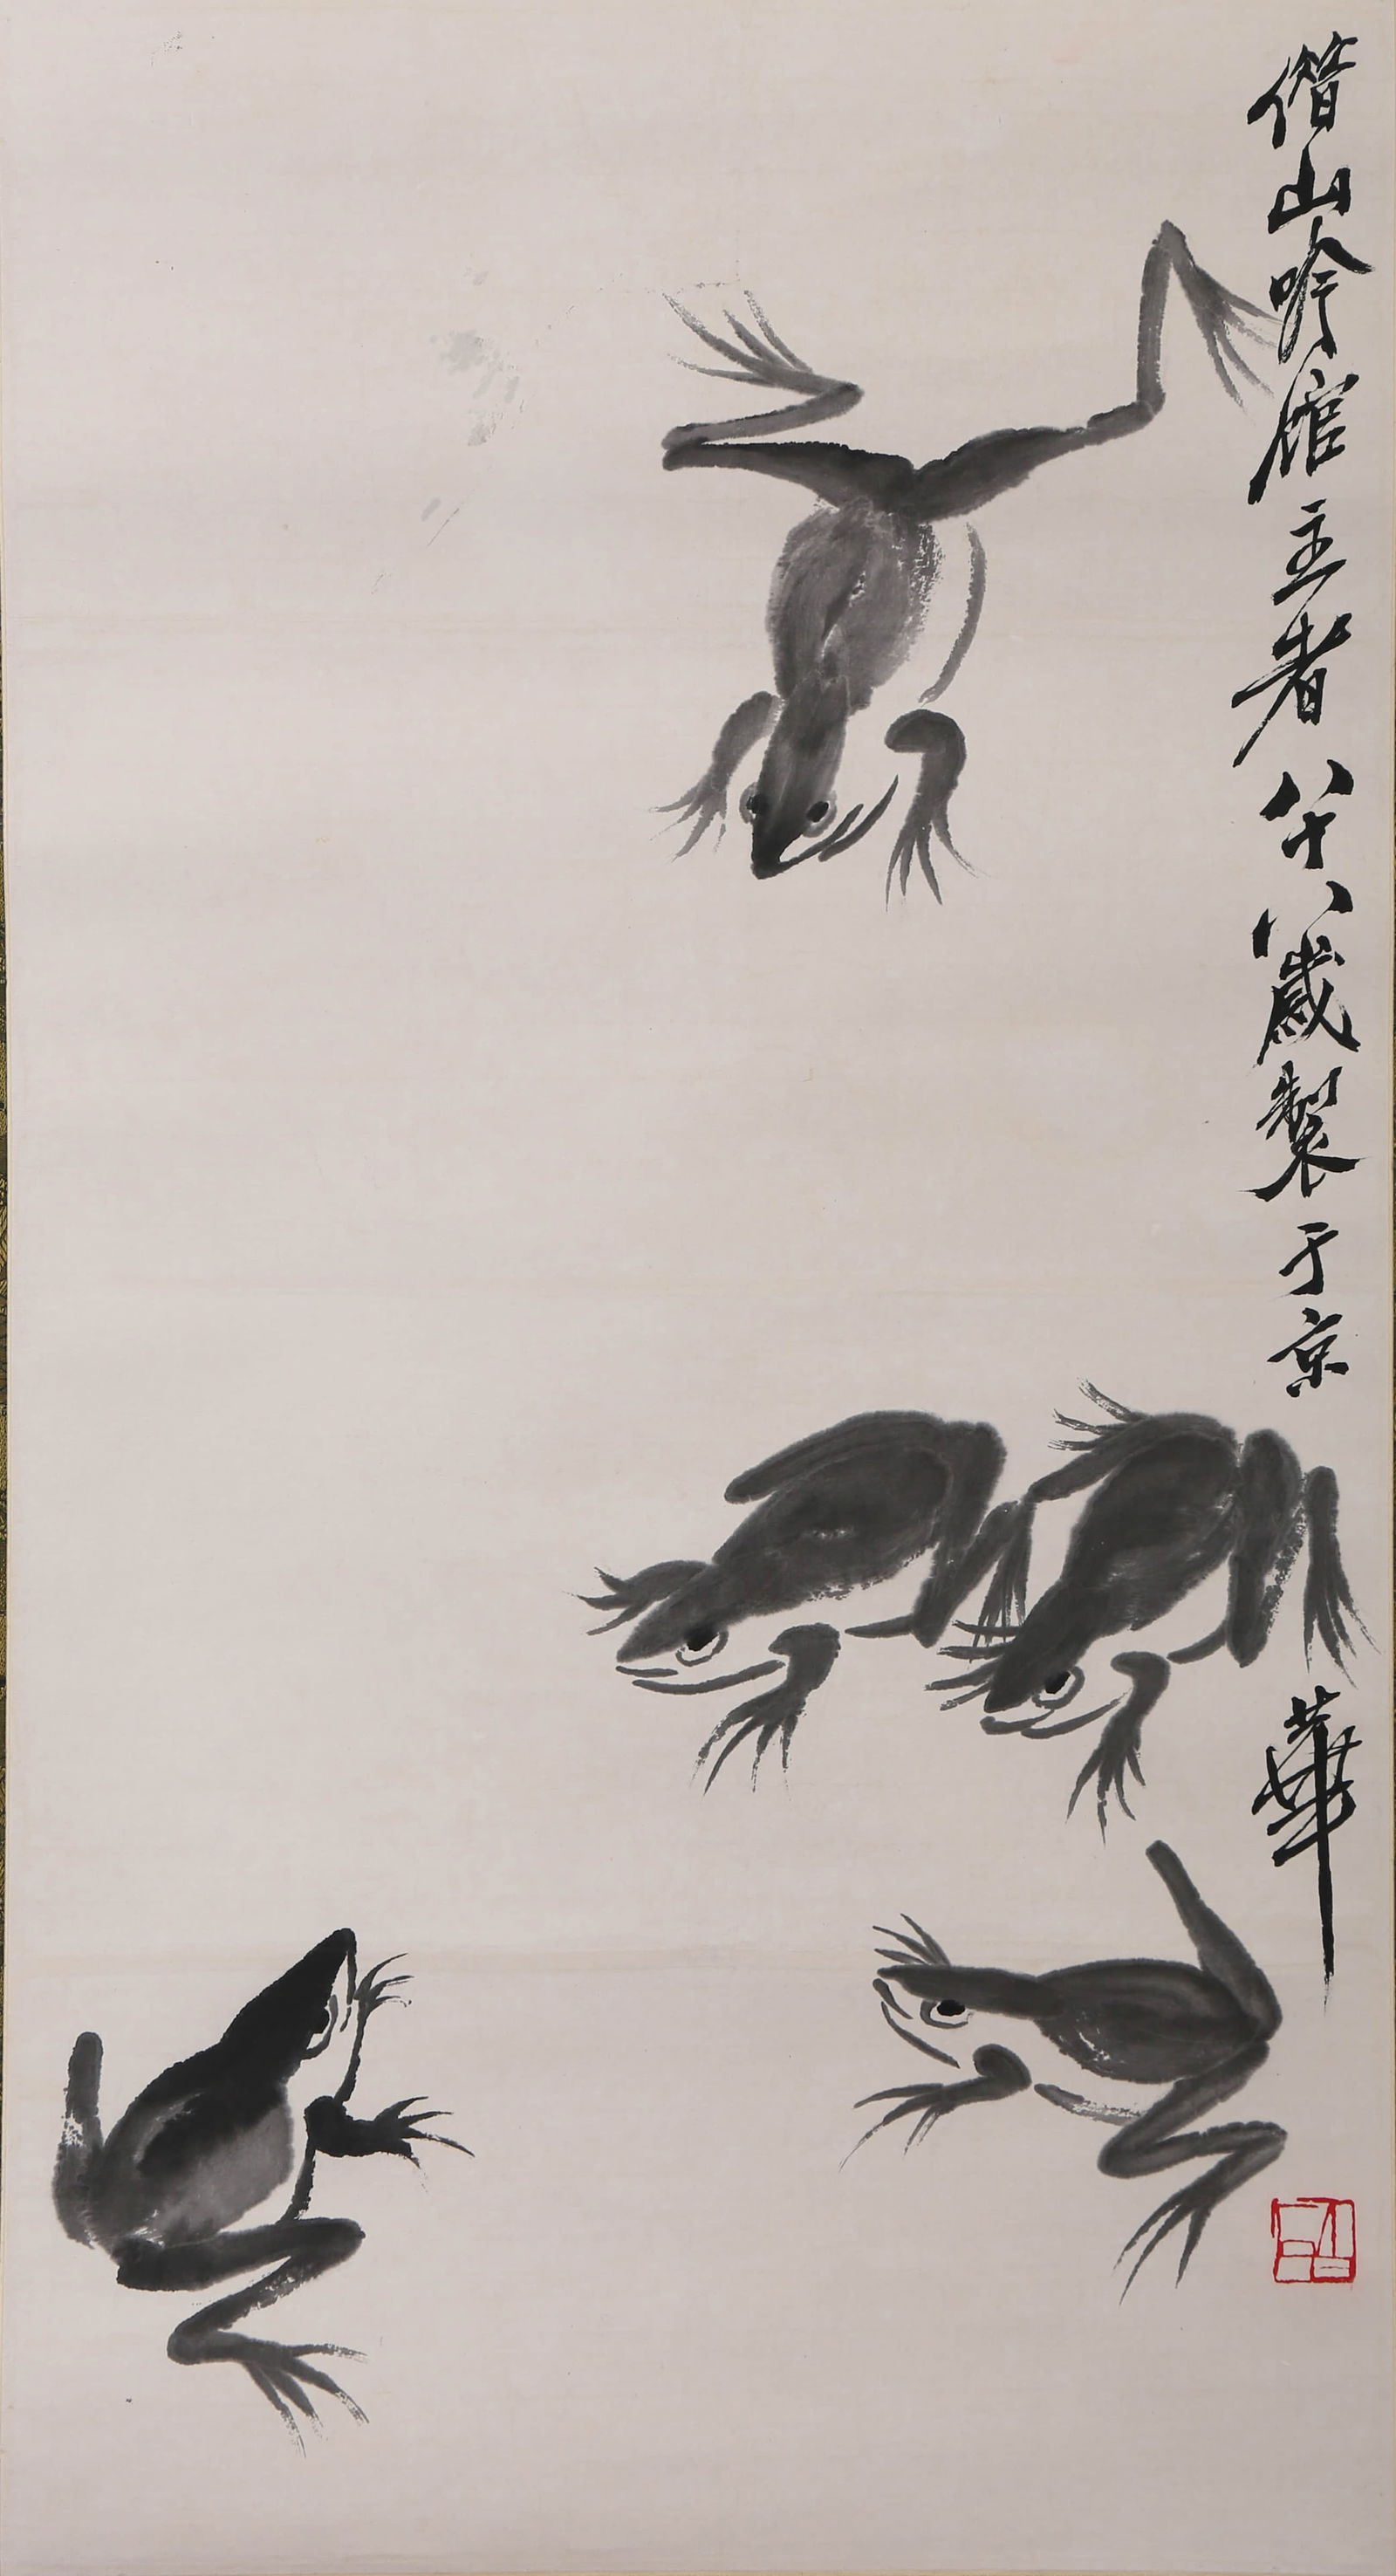 借山吟館主者八十八歲製于京華